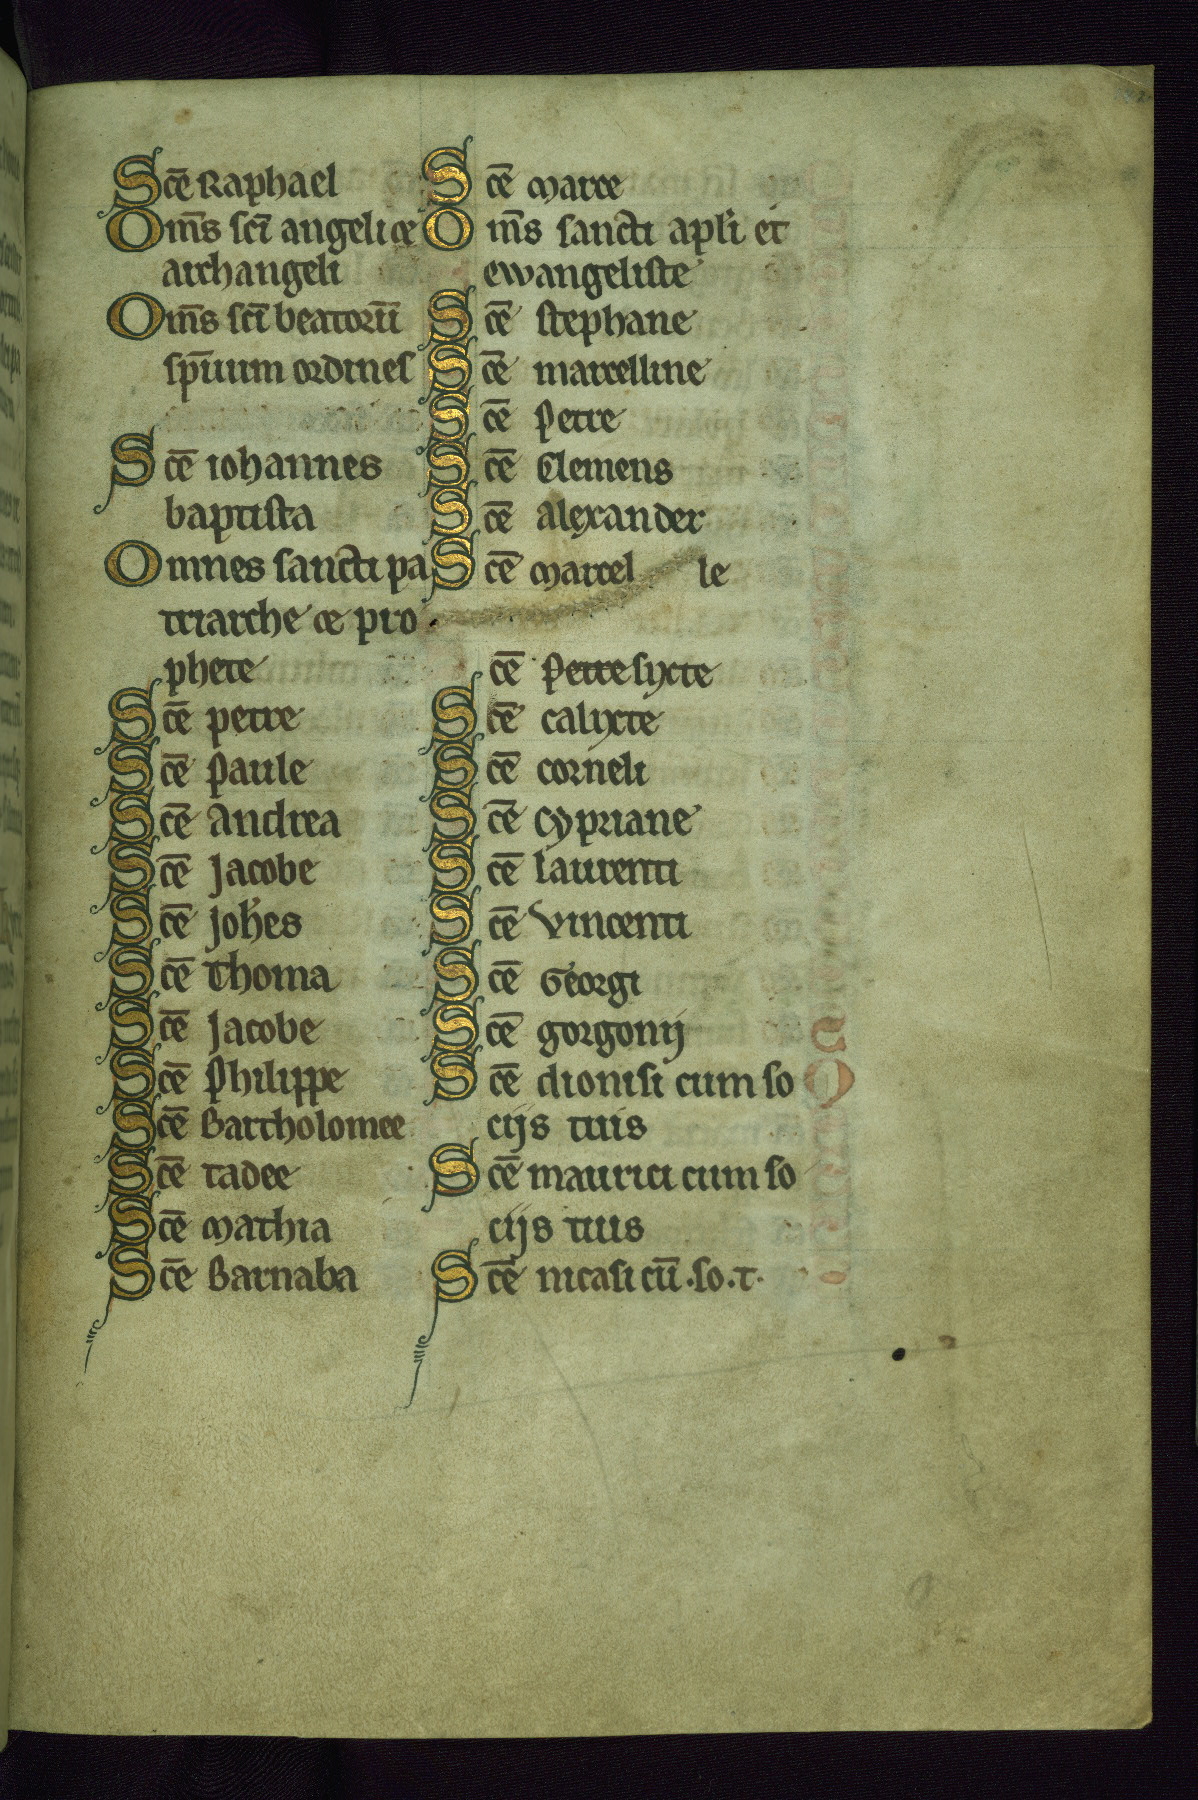 Sc̄e Raphael
Om̄s sc̄i angeli et
archangeli
Om̄s sc̄i beatorū
sp̄uum ordines
Sc̄e iohannes
baptista
Omnes sancti pa
triarche et pro
phete
Sc̄e petre
Sc̄e Paule
Sc̄e Andrea
Sc̄e Jacobe
Sc̄e Joh̄es
Sc̄e Thoma
Sc̄e Jacobe
Sc̄e Philippe
Sc̄e Bartholomee
Sc̄e tadee
Sc̄e Mathia
Sc̄e Barnaba
Sc̄e Marce
Om̄s sancti apl̄i et
ewangeliste
Sc̄e stephane
Sc̄e marcelline
Sc̄e Petre
Sc̄e Clemens
Sc̄e alexander
Sc̄e Marcel le
c̄e Petre syxte
Sc̄e calyxte
Sc̄e corneli
Sc̄e Cypriane
Sc̄e laurenti
Sc̄e vincenti
Sc̄e Georgi
Sc̄e gorgonij
Sc̄e dionisi cum so
cijs tuis
Sc̄e maurici cum so
cijs tuis
Sc̄e nicasi cū .so.t.